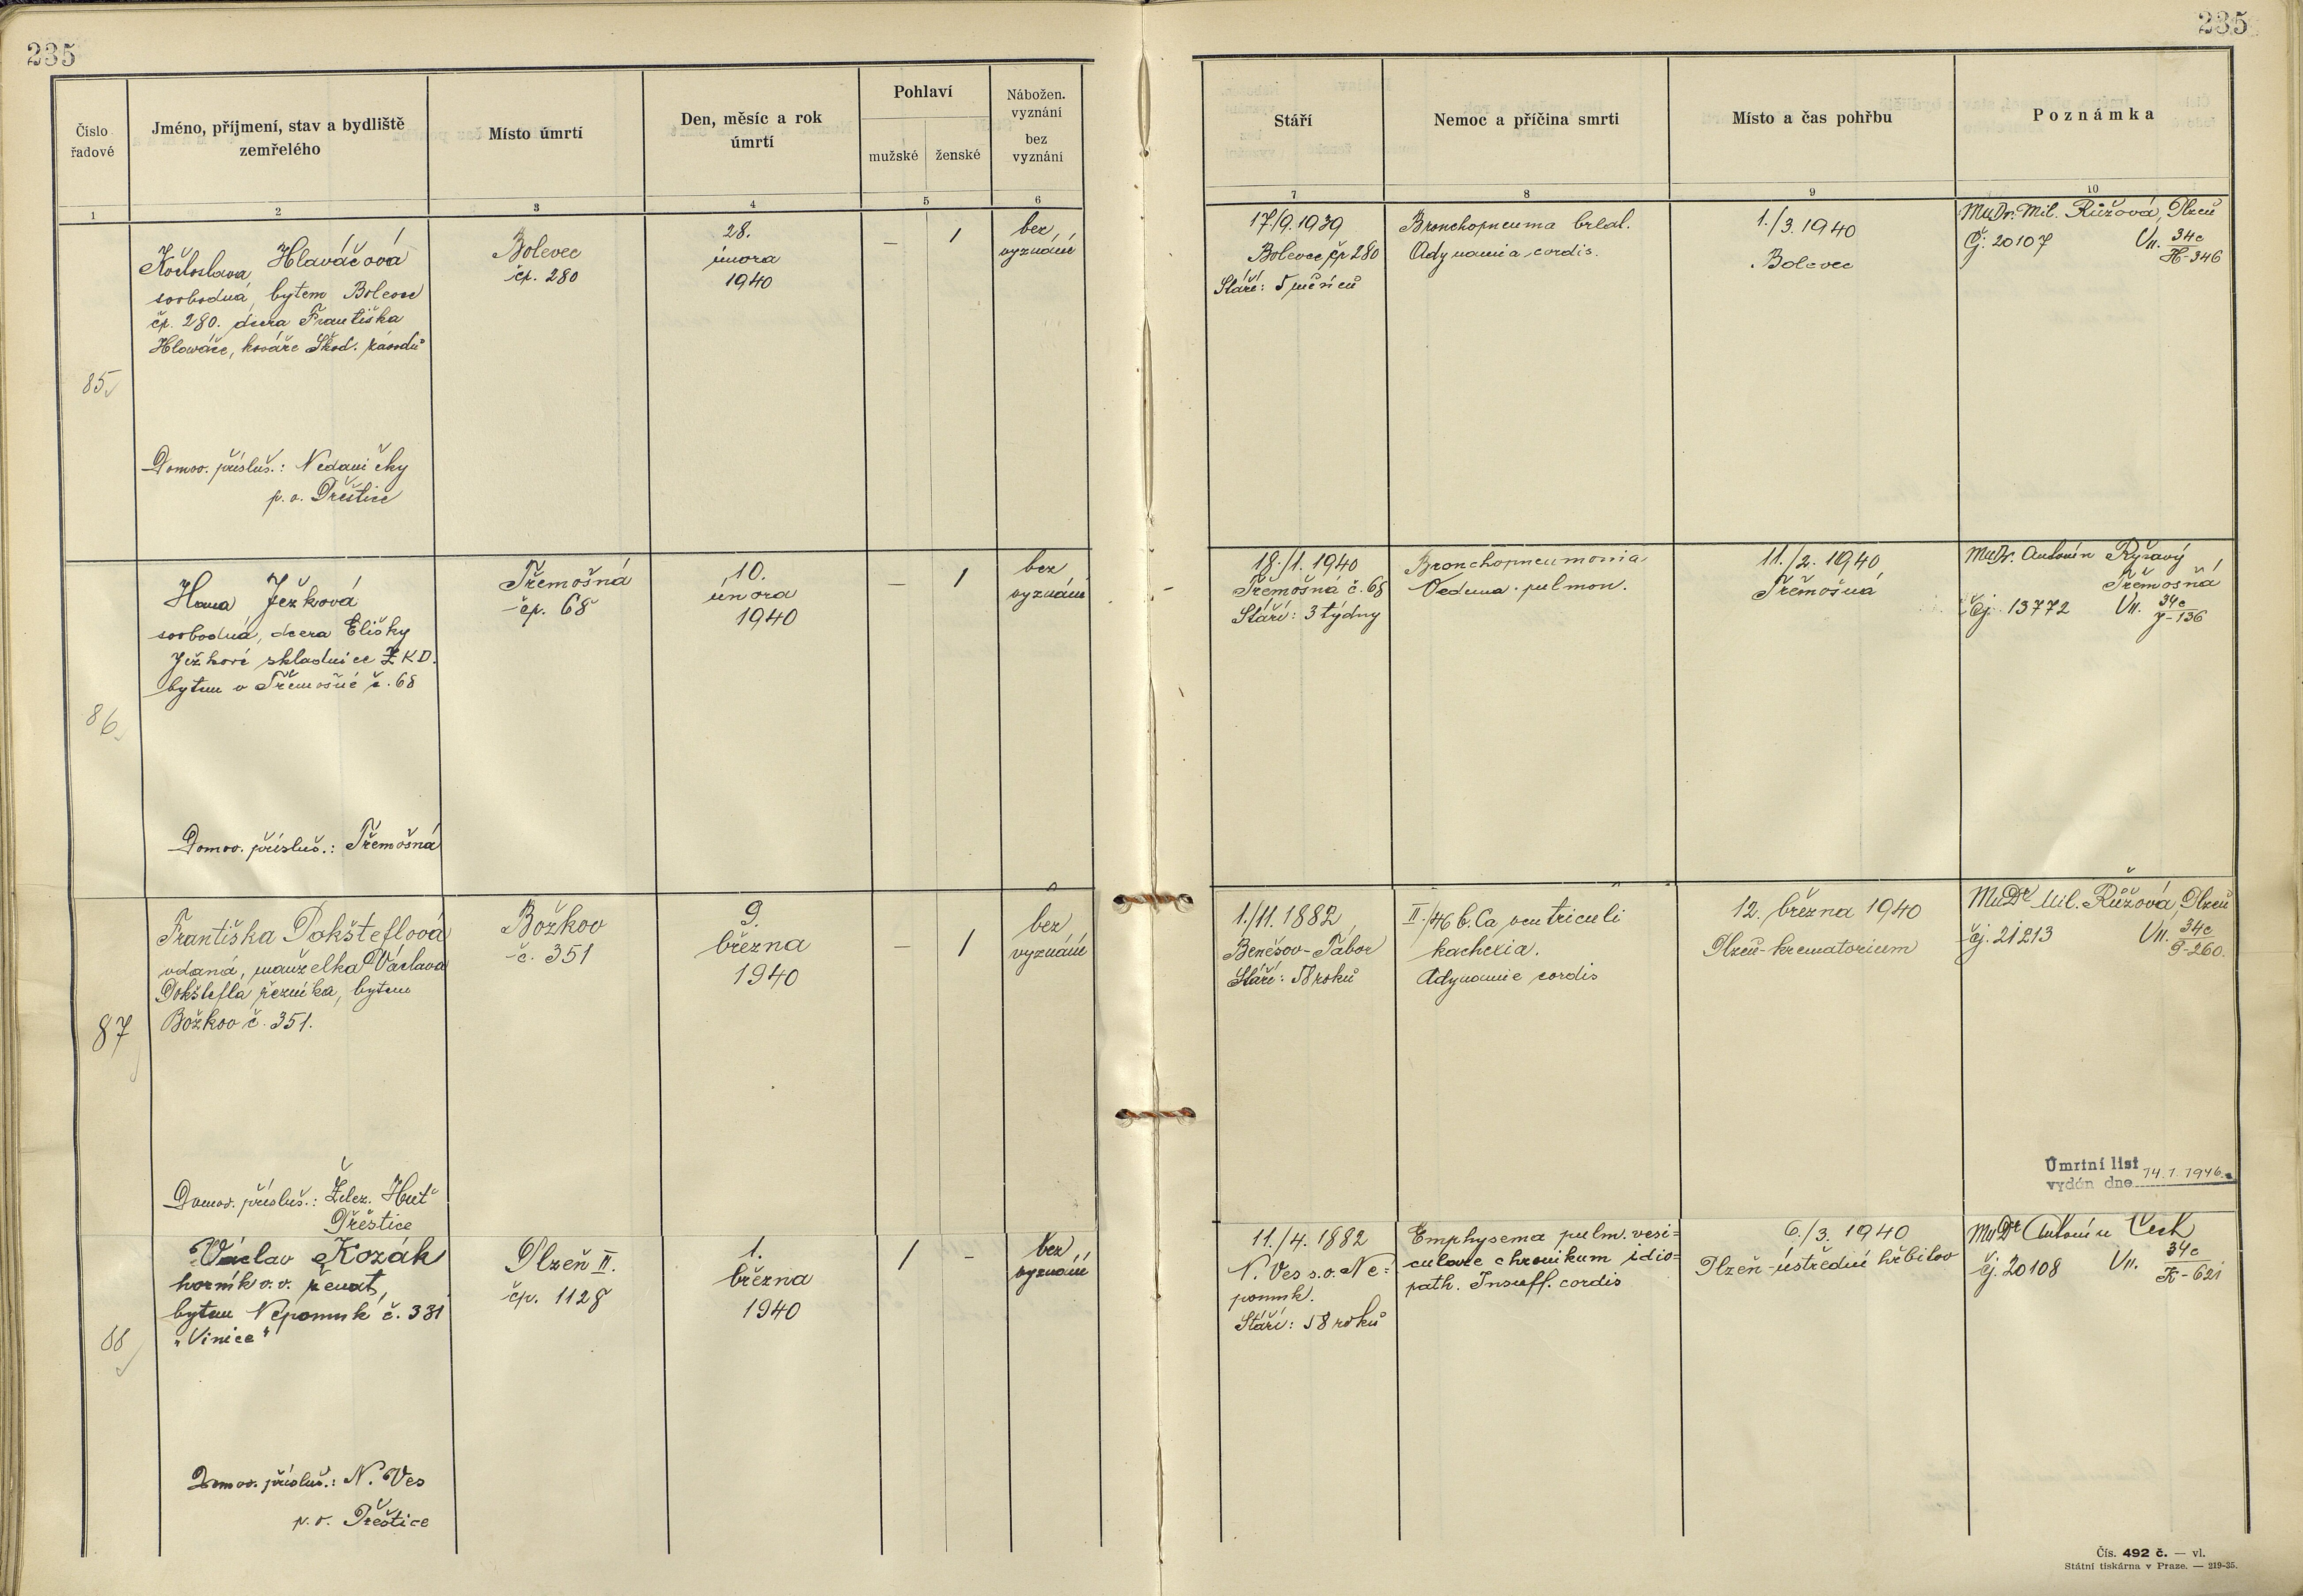 235
235
Číslo řadové
Jméno, příjmení, stav a bydliště zemřelého
Místo úmrtí
Den, měsíc a rok úmrtí
Pohlaví
mužské
ženské
Nábožen. vyznání
bez vyznání
Stáří
Nemoc a příčina smrti
Místo a čas pohřbu
Poznámka
1
2
3
4
5
6
7
8
9
10
85
Květoslava Hlaváčová
svobodná, bytem Bolevec
čp. 280. dcera Františka
Hlaváče, kováře Škod. závodů
Domov. přísluš.: Nedaničky
p. o. Přeštice
Bolevec
čp. 280
28.
února
1940
–
1
bez
vyznání
17./9. 1939
Bolevec čp 280
Stáří: 5 měsíců
Bronchopneuma bilat.
Adynamia cordis.
1./3. 1940
Bolevec
MuDr. Mil. Růžová, Plzeň
Čj. 20107 VII. 34c
H-346
86
Hana Ježková
svobodná, dcera Elišky
Ježkové skladnice ZKD.
bytem v Třemošné č. 68
Domov. přísluš.: Třemošná
Třemošná
čp. 68
10.
února
1940
–
1
bez
vyznání
18./1. 1940
Třemošná č. 68
Stáří: 3 týdny
Bronchopneumonia
Oedema pulmon.
11./2. 1940
Třemošná
MuDr. Antonín Ryšavý
Třemošná
Čj. 13772 VII. 34c
J-136
87
Františka Pokšteflová
vdaná, manželka Václava
Pokštefla řezníka, bytem
Božkov č. 351.
Domov. přísluš.: Želez. Huť
Přeštice
Božkov
č. 351
9.
března
1940
–
1
bez
vyznání
1./11. 1882
Benešov-Tábor
Stáří: 58 roků
II./46 b. Ca ventriculi
kachexia.
Adynamie cordis
12. března 1940
Plzeň-krematorium
MuDr Mil. Růžová, Plzeň
čj. 21213 VII. 34c
P-260.
Úmrtní list
vydán dne 14.1.1946.
88
Václav Kozák
horník v. v. ženat,
bytem Nepomuk č. 331
„Vinice"
Domov. přísluš.: N. Ves
p. o. Přeštice
Plzeň II.
čp. 1128
1.
března
1940
1
–
bez
vyznání
11./4. 1882
N. Ves s. o. Ne=
pomuk.
Stáří: 58 roků
Emphysema pulm. vesi=
culare chronikum idio=
path. Insuff. cordis
6./3. 1940
Plzeň-ústřední hřbitov
MuDr Antonín Čech
čj. 20108 VII. 34c
K-621
Čís. 492 č. — vl.
Státní tiskárna v Praze. — 219-35.